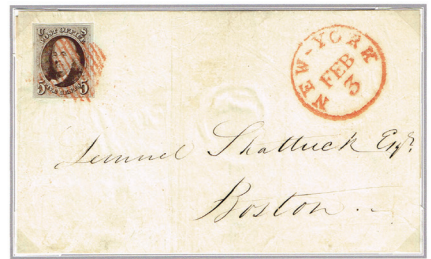 POST OFFICE
5 5
NEW-YORK
FEB
3
Lemuel Shattuck Esqr.
Boston